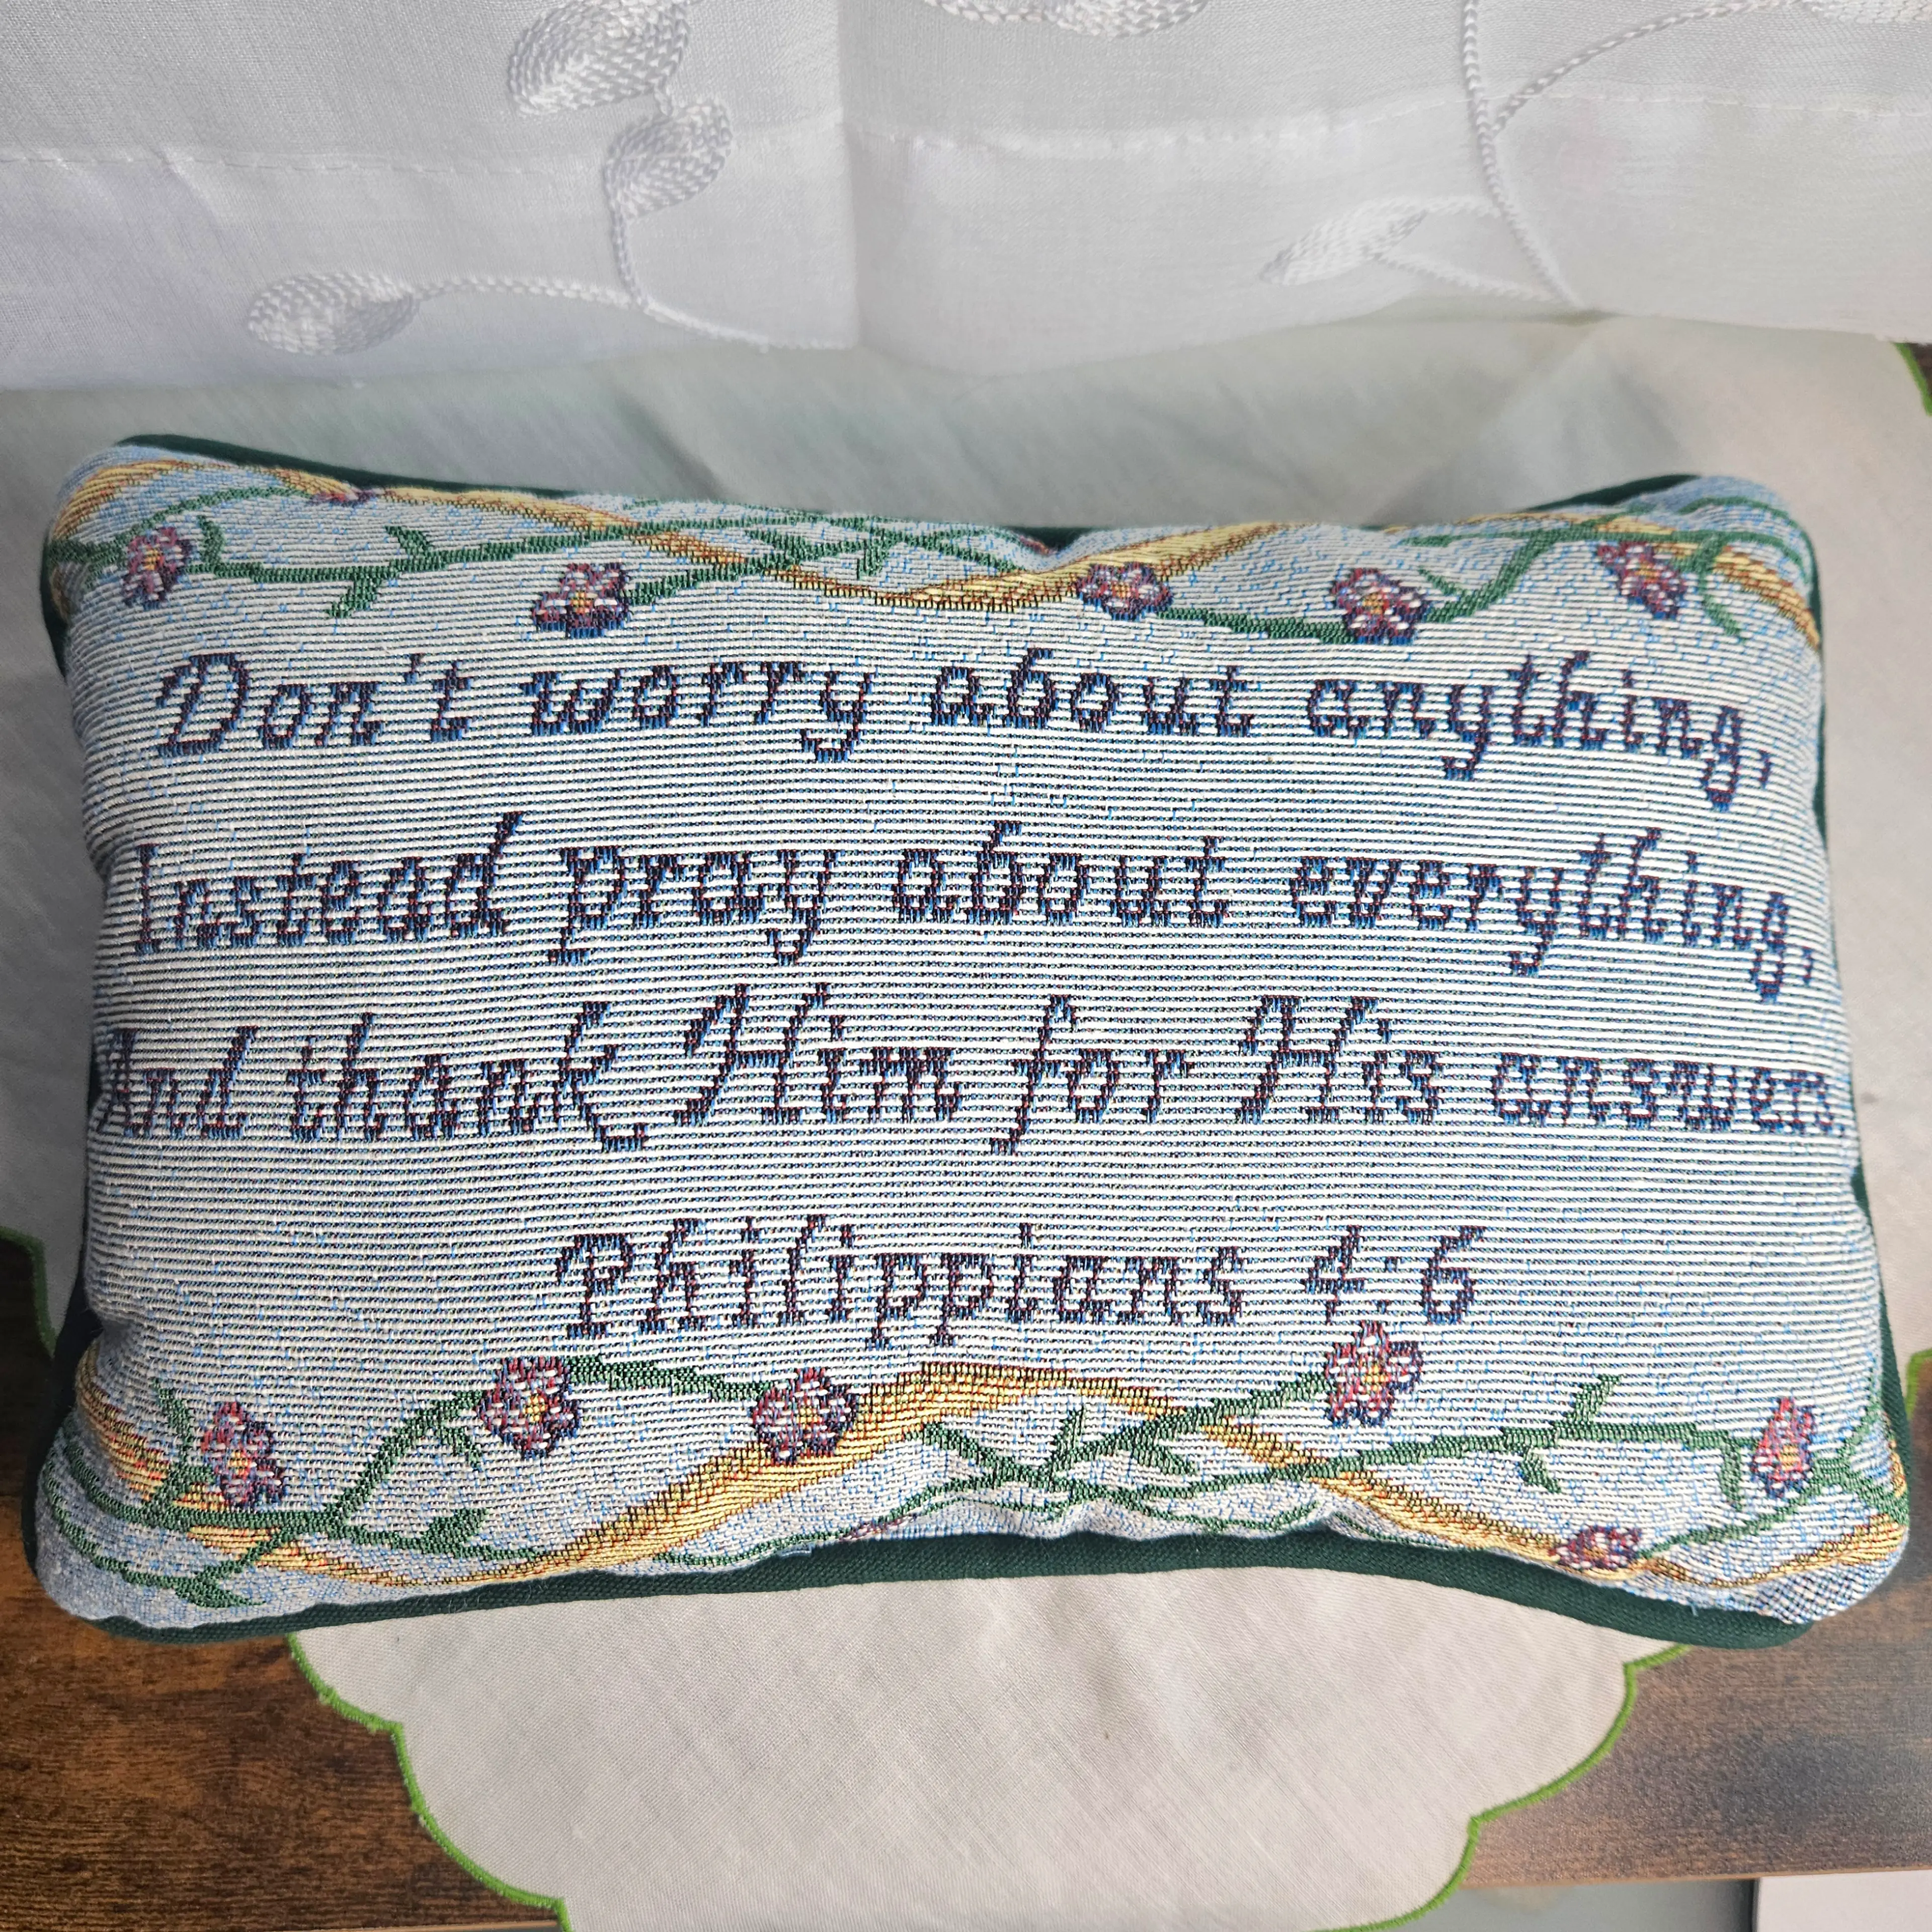 Don't worry about anything,
Instead pray about everything,
And thank Him for His answer.
Philippians 4:6